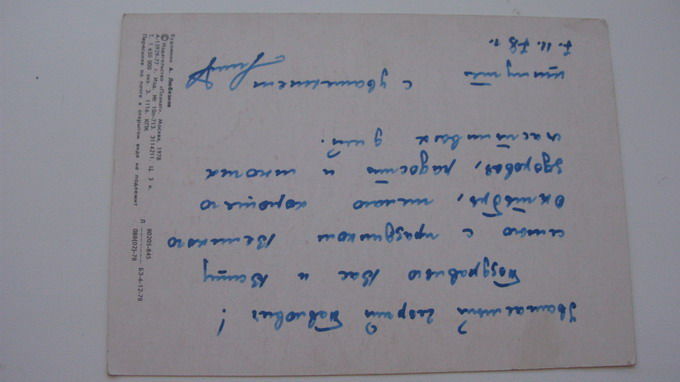 Уважаемый Георгий Павлович!
Поздравляю Вас и Вашу
семью с праздником Великого
Октября, желаю хорошего
здоровья, радости и многих
счастливых дней.
с уважением
7.11.78 г.
Художник А.
© Издательство «Плакат», Москва, 1978
Изд. № 10п-713. 3114211. Ц. 3 к.
Т. 1 450 000 экз. З. 1116. КПК
Пересылке по почте в открытом виде не подлежит
П 80205-645 БЗ-4-12-78
088(02)-78